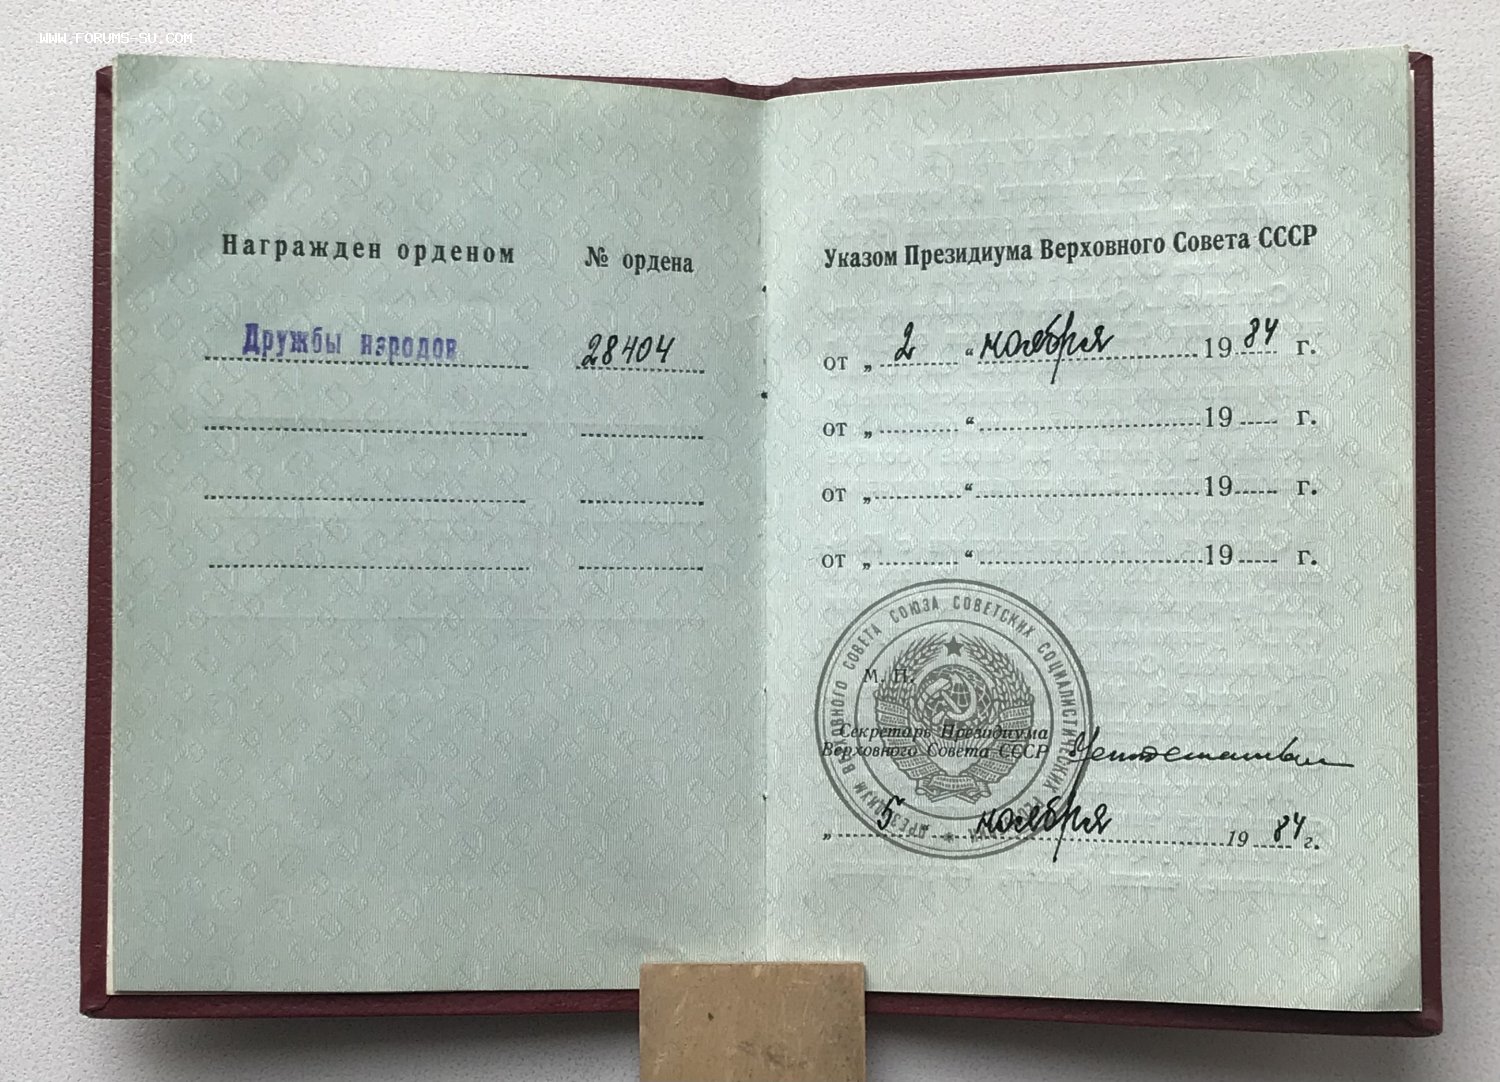 WWW.FORUMS-SU.COM
Награжден орденом
№ ордена
Дружбы народов
28404
Указом Президиума Верховного Совета СССР
от „ 2 “ ноября 19 84 г.
от „ “ 19 г.
от „ “ 19 г.
от „ “ 19 г.
ПРЕЗИДИУМ ВЕРХОВНОГО СОВЕТА СОЮЗА СОВЕТСКИХ СОЦИАЛИСТИЧЕСКИХ РЕСПУБЛИК
М. П.
Секретарь Президиума
Верховного Совета СССР
„ 5 ноября 19 84 г.